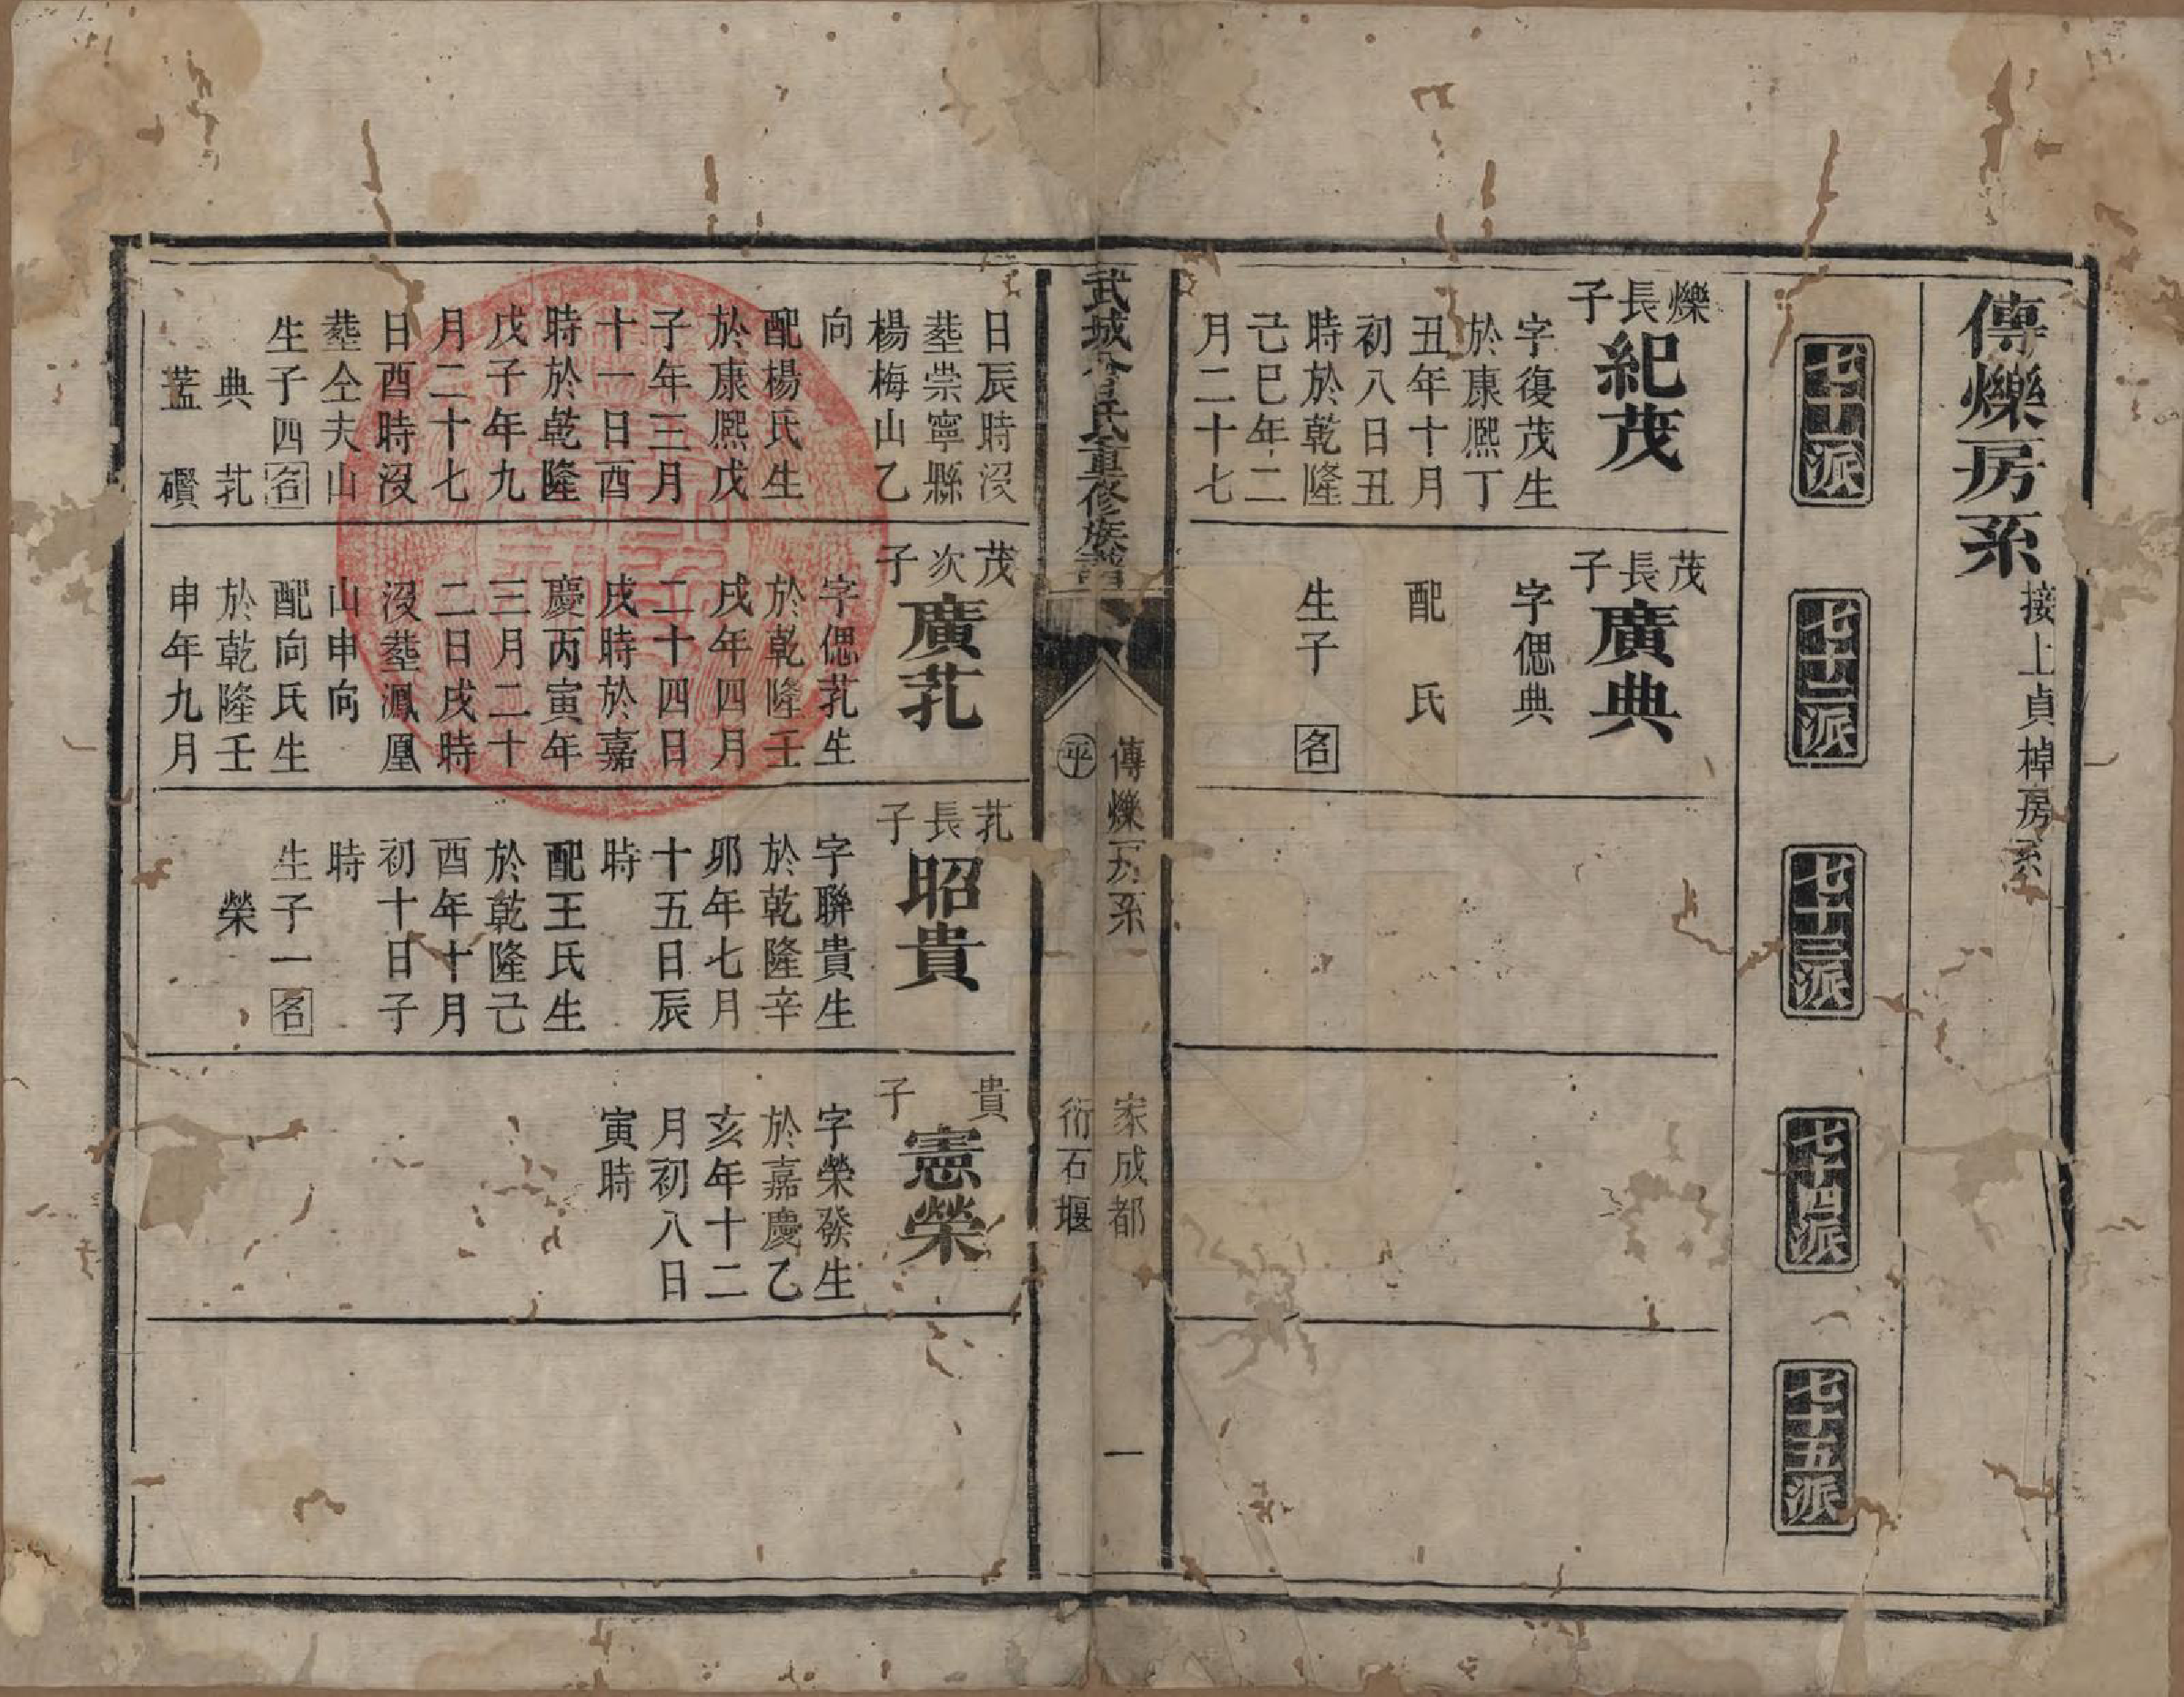 傳爍房系
接上貞樟房系
七十一派
七十二派
七十三派
七十四派
七十五派
爍長子
紀茂
字復茂生
於康熙丁
丑年十月
初八日丑
時於乾隆
己巳年二
月二十七
茂長子
廣典
字偲典
配 氏
生子 名
武城曾氏重修族譜
傳爍房系
平
家成都
衍石堰
一
日辰時没
塟崇寧縣
楊梅山乙
向
配楊氏生
於康熙戊
子年三月
十一日酉
時於乾隆
戊子年九
月二十七
日酉時没
塟仝夫山
生子四名
典 芤
藍 礸
茂次子
廣芤
字偲芤生
於乾隆壬
戌年四月
二十四日
戌時於嘉
慶丙寅年
三月二十
二日戌時
没塟鳳凰
山申向
配向氏生
於乾隆壬
申年九月
芤長子
昭貴
字聨貴生
於乾隆辛
卯年七月
十五日辰
時
配王氏生
於乾隆己
酉年十月
初十日子
時
生子一名
榮
貴子
憲榮
字榮發生
於嘉慶乙
亥年十二
月初八日
寅時